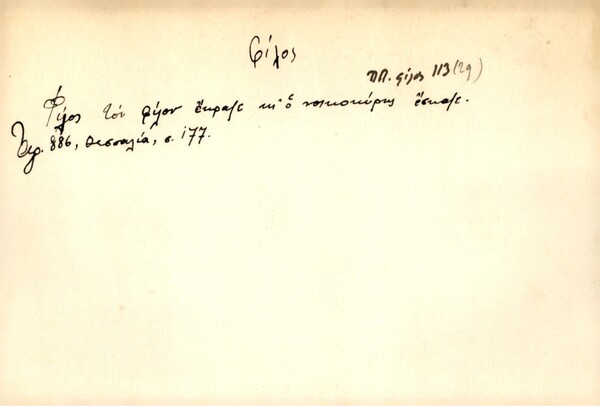 φίλος
ΠΠ. φίλος 113 (29)
Φίλος τὸν φίλον ἔκραξε κι' ὁ νοικοκύρης ἔσκαξε.
Χερ. 886, Θεσσαλία, σ. 177.